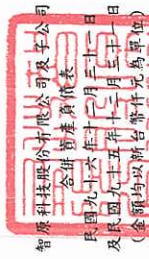 智原科技股份有限公司及子公司
合併資產負債表
民國九十六年十二月三十一日
及民國九十五年十二月三十一日
(金額均以新台幣仟元為單位)